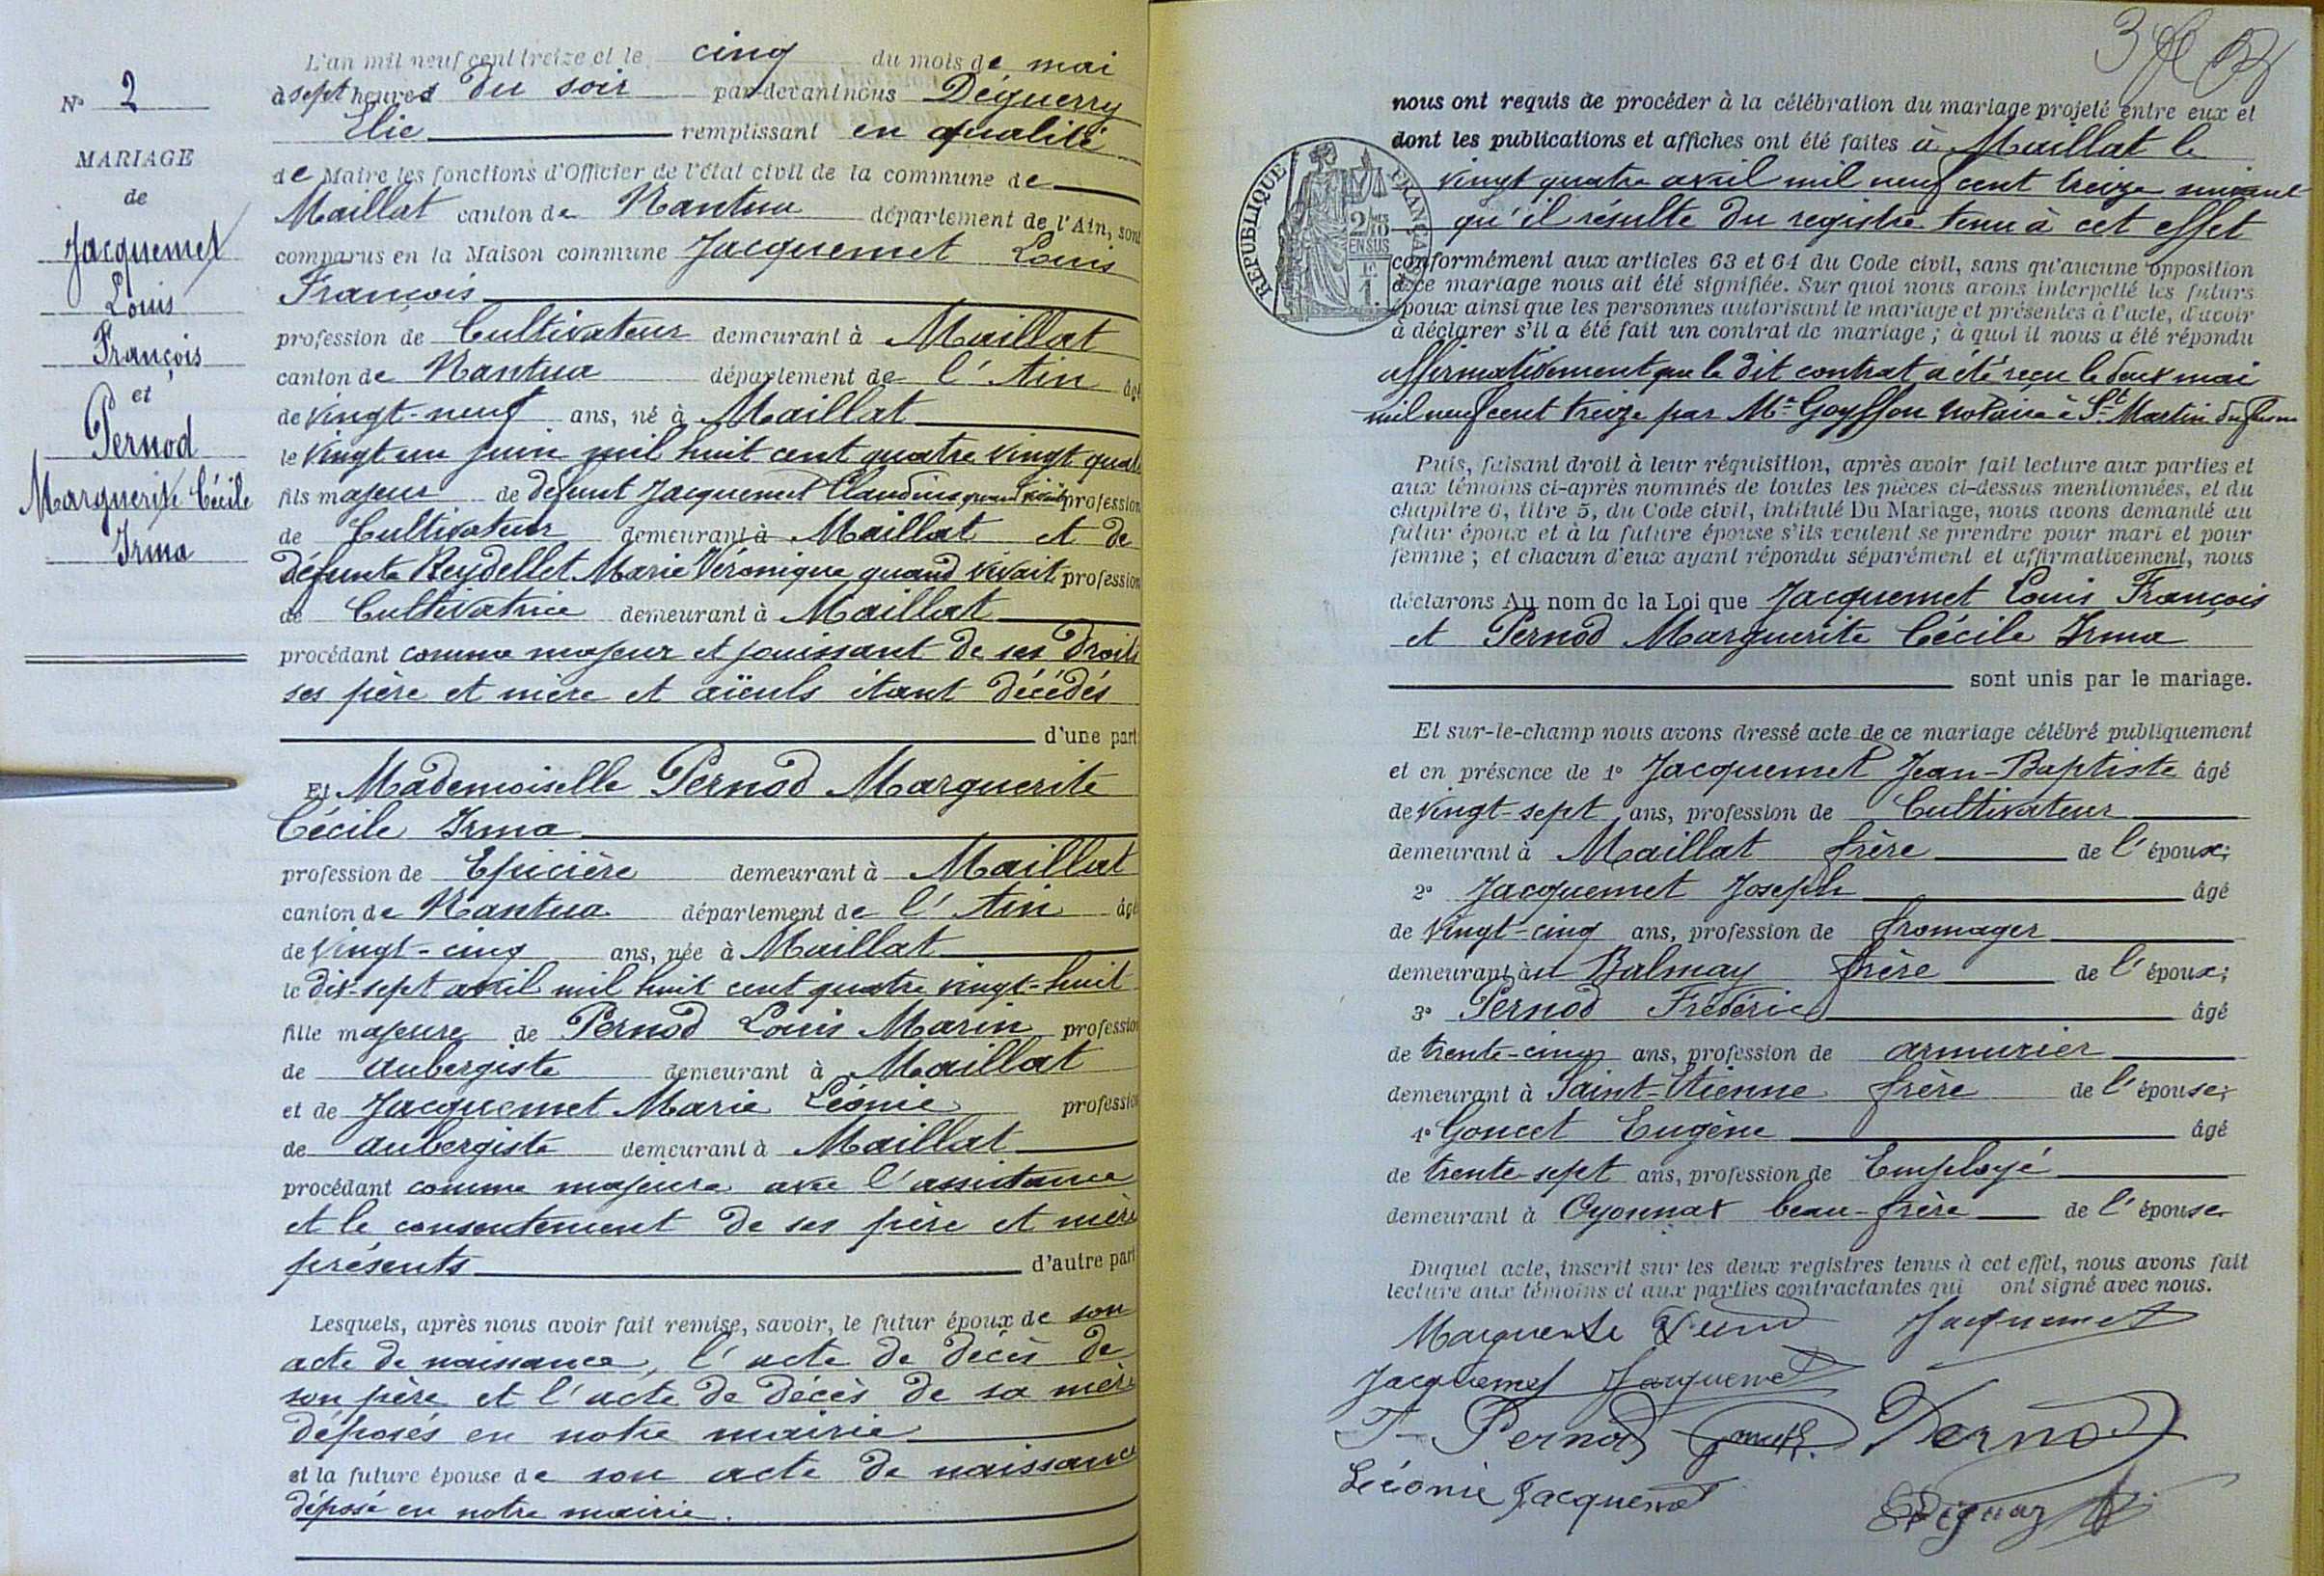 N° 2
MARIAGE
de
Jacquemet
Louis
François
et
Pernod
Marguerite Cécile
Irma
L'an mil neuf cent treize et le cinq du mois de mai
à sept heures du soir par devant nous Déguerry
Elie remplissant en qualité
de Maire les fonctions d'Officier de l'état civil de la commune de
Maillat canton de Nantua département de l'Ain, sont
comparus en la Maison commune Jacquemet Louis
François
profession de Cultivateur demeurant à Maillat
canton de Nantua département de l'Ain âgé
de vingt-neuf ans, né à Maillat
le vingt un juin mil huit cent quatre vingt quatre
fils majeur de défunt Jacquemet Claudius quand vivait profession
de Cultivateur demeurant à Maillat et de
défunte Reydellet Marie Véronique quand vivait profession
de Cultivatrice demeurant à Maillat
procédant comme majeur et jouissant de ses droits
ses père et mère et aïeuls étant décédés
d'une part
Et Mademoiselle Pernod Marguerite
Cécile Irma
profession de Epicière demeurant à Maillat
canton de Nantua département de l'Ain âgé
de vingt-cinq ans, née à Maillat
le dix-sept avril mil huit cent quatre vingt-huit
fille majeure de Pernod Louis Marin profession
de aubergiste demeurant à Maillat
et de Jacquemet Marie Léonie profession
de aubergiste demeurant à Maillat
procédant comme majeure avec l'assistance
et le consentement de ses père et mère
présents d'autre part
Lesquels, après nous avoir fait remise, savoir, le futur époux de son
acte de naissance, l'acte de décès de
son père et l'acte de décès de sa mère
déposés en notre mairie
et la future épouse de son acte de naissance
déposé en notre mairie.
nous ont requis de procéder à la célébration du mariage projeté entre eux et
dont les publications et affiches ont été faites à Maillat le
vingt quatre avril mil neuf cent treize suivant
qu'il résulte du registre tenu à cet effet
conformément aux articles 63 et 64 du Code civil, sans qu'aucune opposition
à ce mariage nous ait été signifiée. Sur quoi nous avons interpellé les futurs
époux ainsi que les personnes autorisant le mariage et présentes à l'acte, d'avoir
à déclarer s'il a été fait un contrat de mariage ; à quoi il nous a été répondu
affirmativement que le dit contrat a été reçu le deux mai
mil neuf cent treize par Me Goyffon notaire à St Martin du fresne
Puis, faisant droit à leur réquisition, après avoir fait lecture aux parties et
aux témoins ci-après nommés de toutes les pièces ci-dessus mentionnées, et du
chapitre 6, titre 5, du Code civil, intitulé Du Mariage, nous avons demandé au
futur époux et à la future épouse s'ils veulent se prendre pour mari et pour
femme ; et chacun d'eux ayant répondu séparément et affirmativement, nous
déclarons Au nom de la Loi que Jacquemet Louis François
et Pernod Marguerite Cécile Irma
sont unis par le mariage.
Et sur-le-champ nous avons dressé acte de ce mariage célébré publiquement
et en présence de 1° Jacquemet Jean-Baptiste âgé
de vingt-sept ans, profession de Cultivateur
demeurant à Maillat frère de l'époux;
2° Jacquemet Joseph âgé
de vingt-cinq ans, profession de fromager
demeurant au Balmay frère de l'époux;
3° Pernod Frédéric âgé
de trente-cinq ans, profession de armurier
demeurant à Saint-Etienne frère de l'épouse;
4° Goncet Eugène âgé
de trente-sept ans, profession de Employé
demeurant à Oyonnax beau-frère de l'épouse
Duquel acte, inscrit sur les deux registres tenus à cet effet, nous avons fait
lecture aux témoins et aux parties contractantes qui ont signé avec nous.
Marguerite Jacquemet
Jacquemet Jacquemet
F Pernod Pernod
Léonie Jacquemet
REPUBLIQUE FRANÇAISE